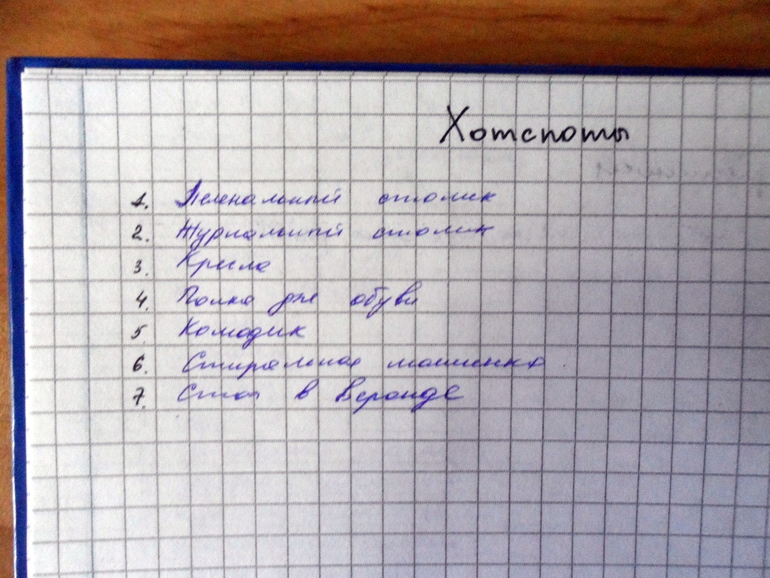 Хотспоты
1. Пеленальный столик
2. Журнальный столик
3. Кресло
4. Полка для обуви
5. Комодик
6. Стиральная машинка
7. Стол в веранде